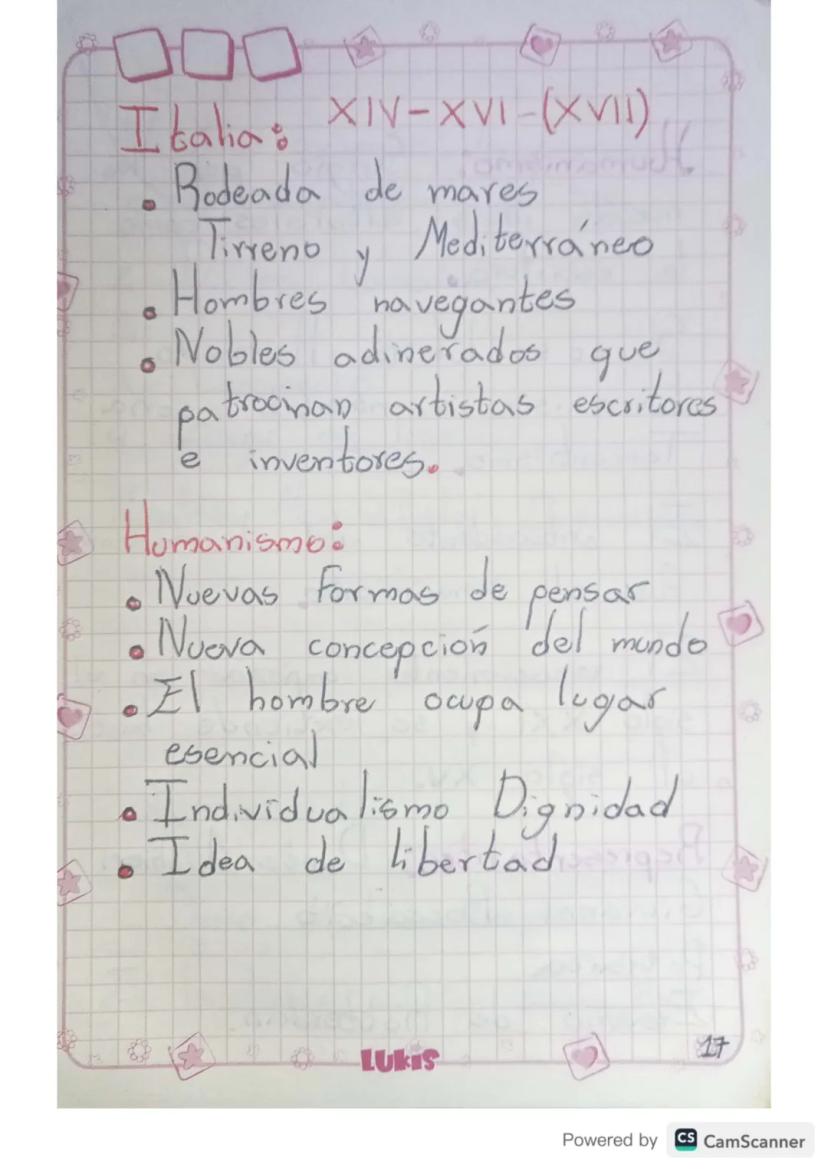 Italia: XIV-XVI-(XVII)
• Rodeada de mares
Tirreno y Mediterráneo
• Hombres navegantes
• Nobles adinerados que
patrocinan artistas escritores
e inventores.
Humanismo:
• Nuevas formas de pensar
• Nueva concepción del mundo
• El hombre ocupa lugar
esencial
• Individualismo Dignidad
• Idea de libertad
LUKIS
17
Powered by CS CamScanner